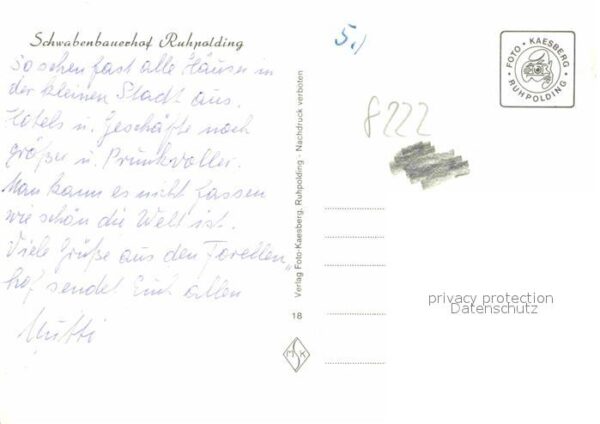 Schwabenbauerhof Ruhpolding
So sehen fast alle Häuser in
der kleinen Stadt aus.
Hotels u. Geschäfte noch
größer u. Prunkvoller.
Man kann es nicht fassen
wie schön die Welt ist.
Viele Grüße aus den Forellen
hof sendet Euch allen
Mutti
5.)
8222
FOTO · KAESBERG · RUHPOLDING ·
Verlag Foto-Kaesberg, Ruhpolding - Nachdruck verboten
18
M S K
privacy protection
Datenschutz